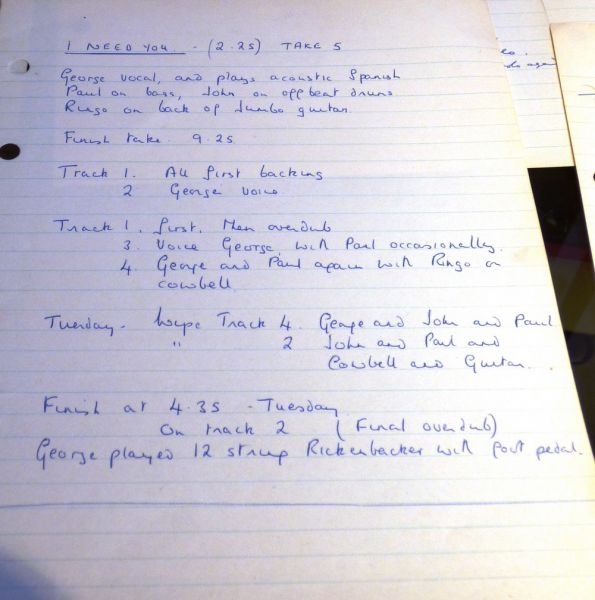 I NEED YOU - (2.25) TAKE 5
George vocal, and plays acoustic Spanish
Paul on bass, John on offbeat drums
Ringo on back of Jumbo guitar.
Finish take. 9.25
Track 1. All first backing
2 George voice.
Track 1. first. Then overdub
3. Voice George with Paul occasionally.
4. George and Paul again with Ringo on
cowbell
Tuesday - Wipe Track 4. George and John and Paul
" 2 John and Paul and
Cowbell and Guitar.
Finish at 4.35 - Tuesday
On track 2 (Final overdub)
George played 12 string Rickenbacker with foot pedal.